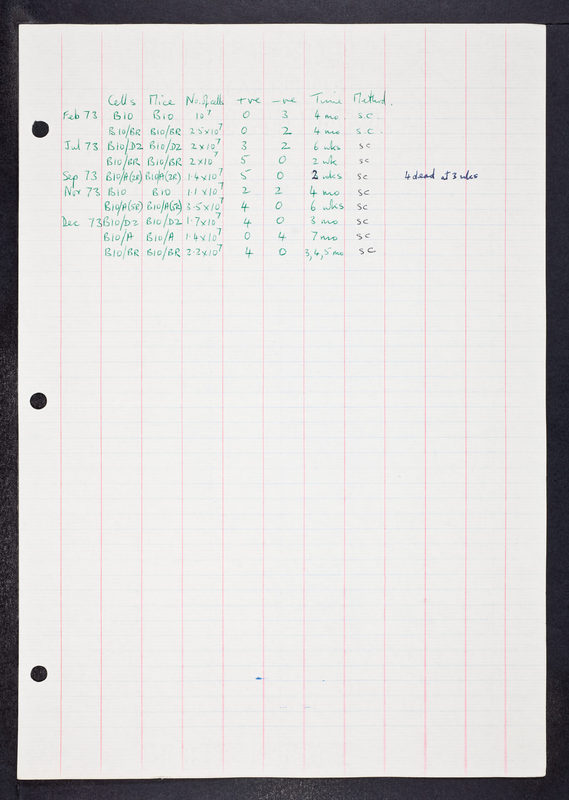 Cells Mice No. of cells +ve -ve Time Method.
Feb 73 B10 B10 10⁷ 0 3 4 mo s.c.
B10/BR B10/BR 2.5×10⁷ 0 2 4 mo s.c.
Jul 73 B10/D2 B10/D2 2×10⁷ 3 2 6 wks sc
B10/BR B10/BR 2×10⁷ 5 0 2 wk sc
Sep 73 B10/A(2R) B10/A(2R) 1.4×10⁷ 5 0 2 wks sc 4 dead at 3 wks
Nov 73 B10 B10 1.1×10⁷ 2 2 4 mo sc
B10/A(5R) B10/A(5R) 3.5×10⁷ 4 0 6 wks sc
Dec 73 B10/D2 B10/D2 1.7×10⁷ 4 0 3 mo sc
B10/A B10/A 1.4×10⁷ 0 4 7 mo sc
B10/BR B10/BR 2.2×10⁷ 4 0 3,4,5 mo sc